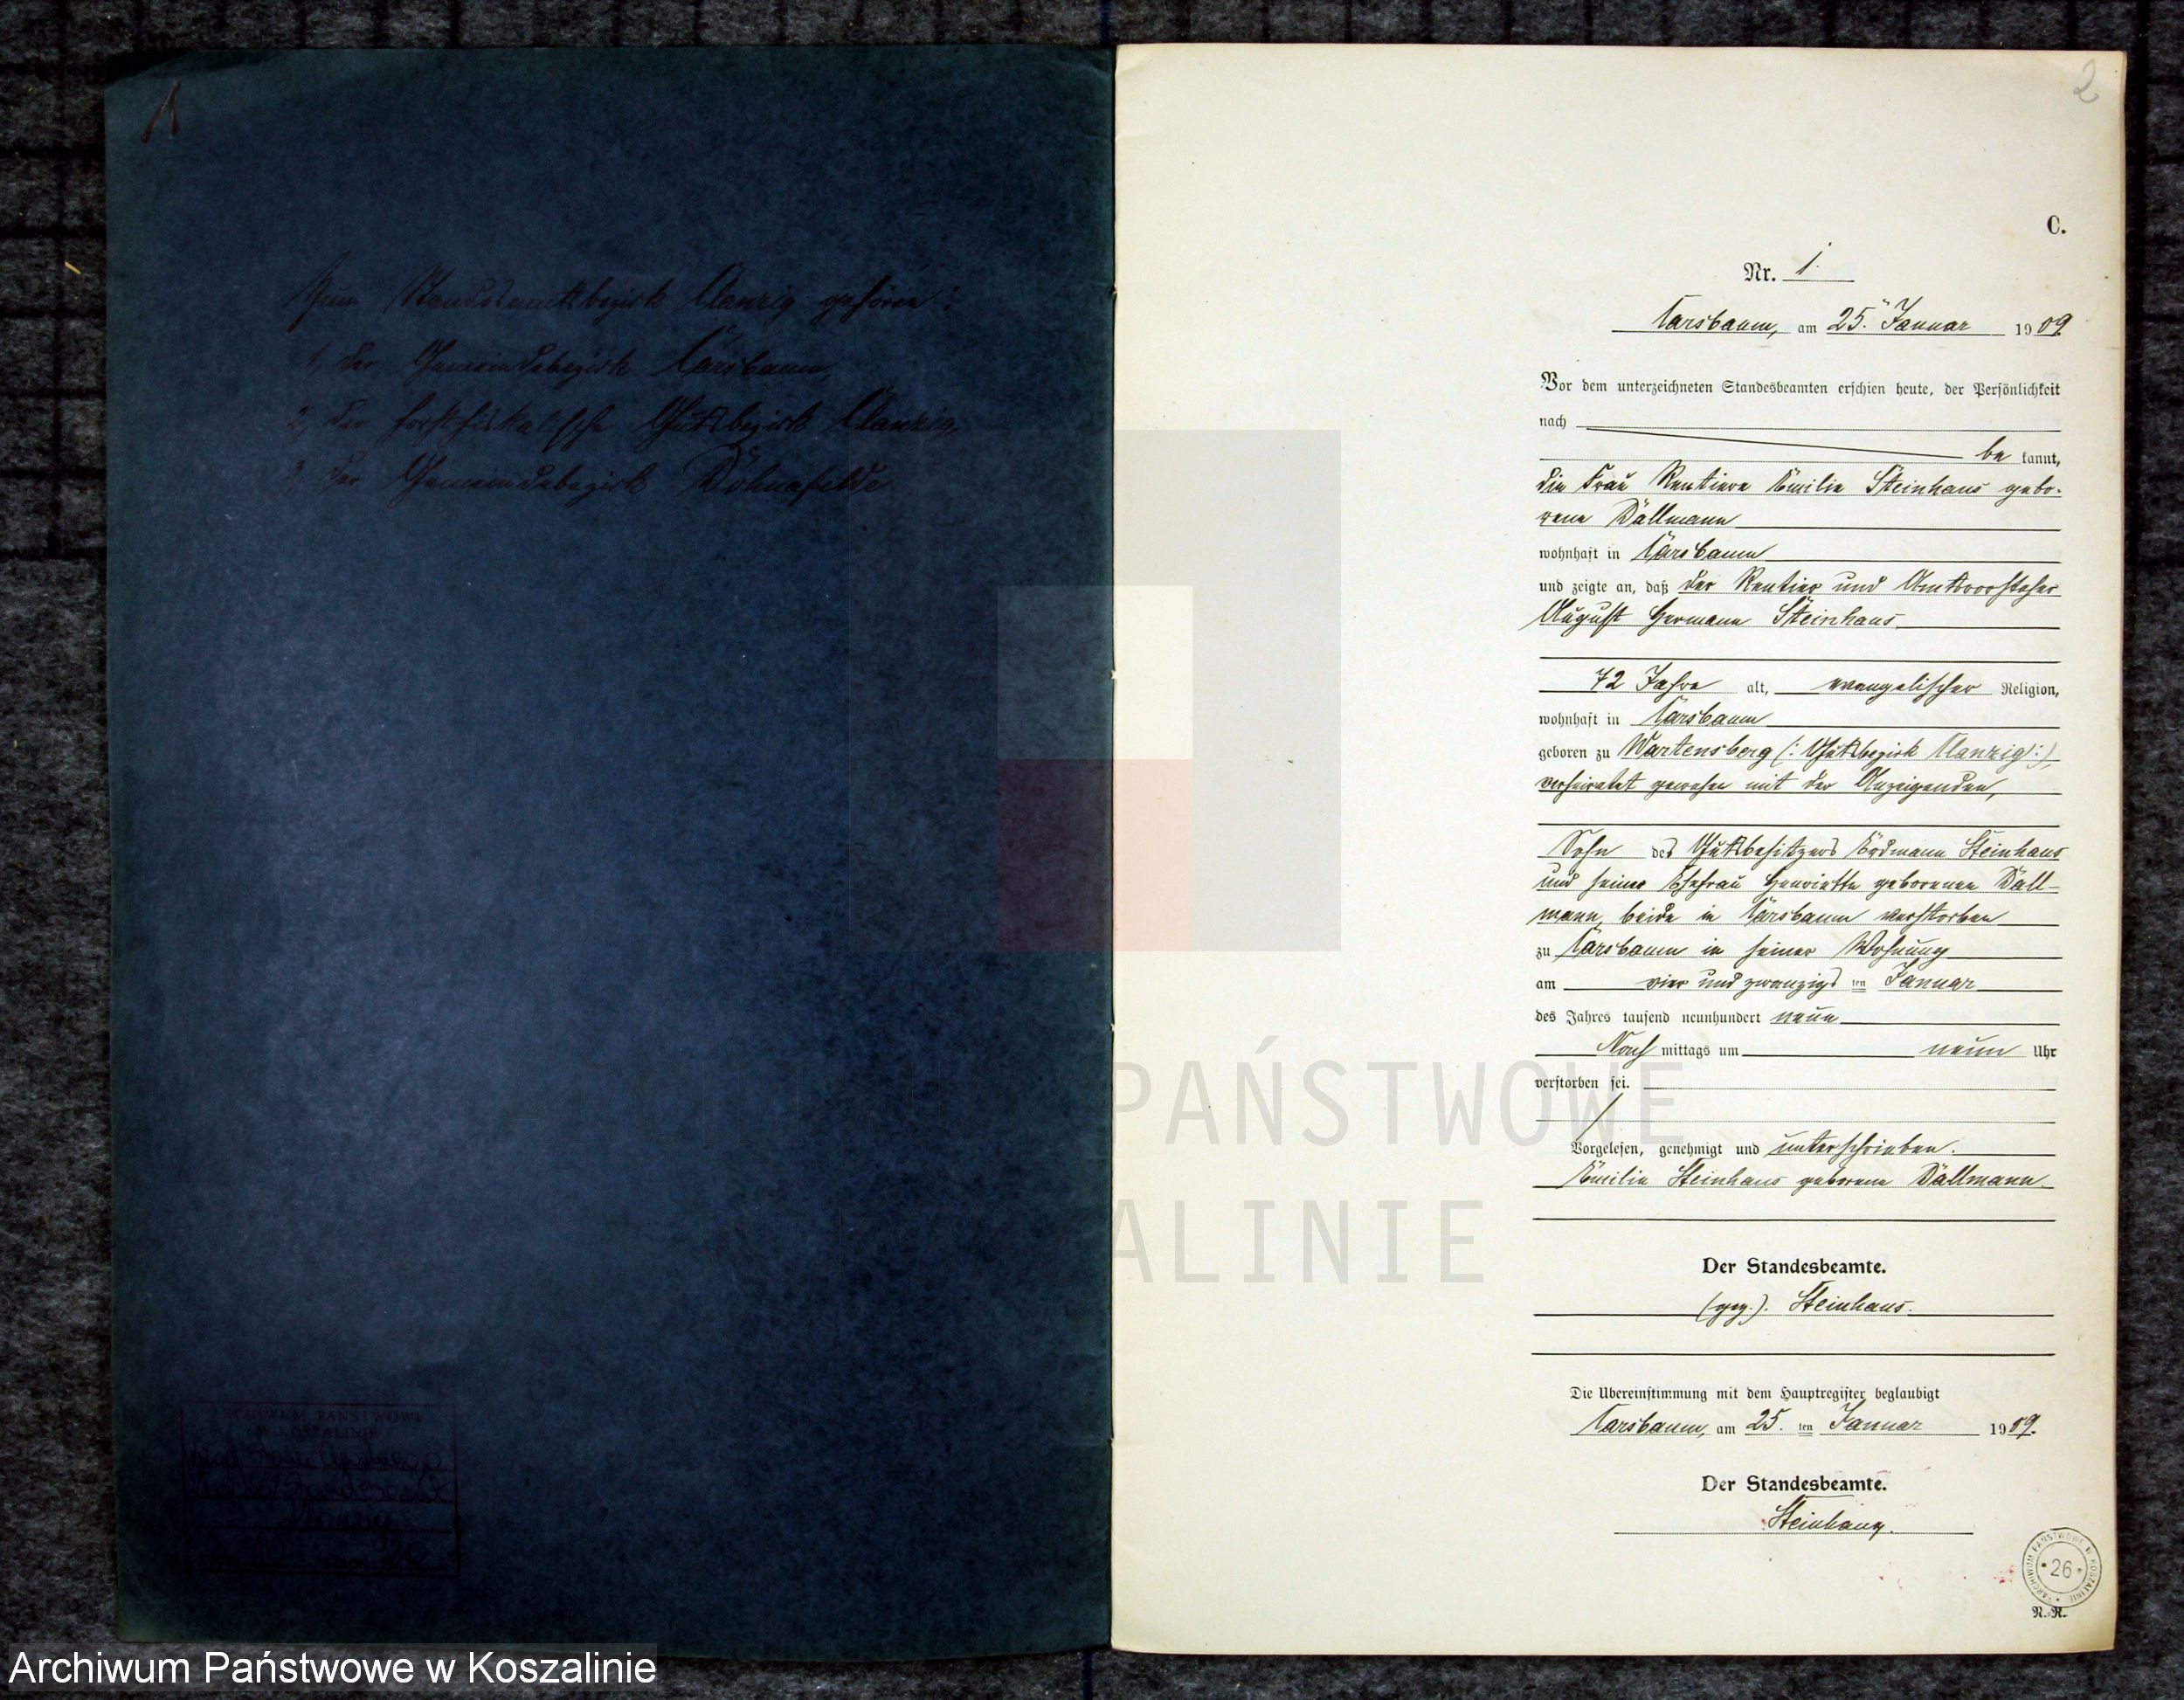 1
Zum Standesamtsbezirk Clanzig gehören:
1, der Gemeindebezirk Carsbaum,
2, der forstfiskalische Gutsbezirk Clanzig,
3, der Gemeindebezirk Döhnafelde
ARCHIWUM PAŃSTWOWE
W KOSZALINIE
2
C.
Nr. 1.
Carsbaum, am 25. Januar 1909.
Vor dem unterzeichneten Standesbeamten erschien heute, der Persönlichkeit
nach
be kannt,
die Frau Rentiere Emilie Steinhaus gebo-
rene Dallmann
wohnhaft in Carsbaum
und zeigte an, daß der Rentier und Amtsvorsteher
August Hermann Steinhaus
72 Jahre alt, evangelischer Religion,
wohnhaft in Carsbaum
geboren zu Wartensberg (: Gutsbezirk Clanzig :),
verheiratet gewesen mit der Anzeigenden,
Sohn des Gutsbesitzers Erdmann Steinhaus
und seiner Ehefrau Henriette geborenen Dall-
mann, beide in Carsbaum verstorben
zu Carsbaum in seiner Wohnung
am vier und zwanzigsten Januar
des Jahres tausend neunhundert neun
Nach mittags um neun Uhr
verstorben sei.
Vorgelesen, genehmigt und unterschrieben.
Emilie Steinhaus geborene Dallmann
Der Standesbeamte.
(gez.). Steinhaus.
Die Übereinstimmung mit dem Hauptregister beglaubigt
Carsbaum, am 25. ten Januar 1909.
Der Standesbeamte.
Steinhaus.
ARCHIWUM PAŃSTWOWE W KOSZALINIE
* 26 *
N.-R.
PAŃSTWOWE
ALINIE
Archiwum Państwowe w Koszalinie